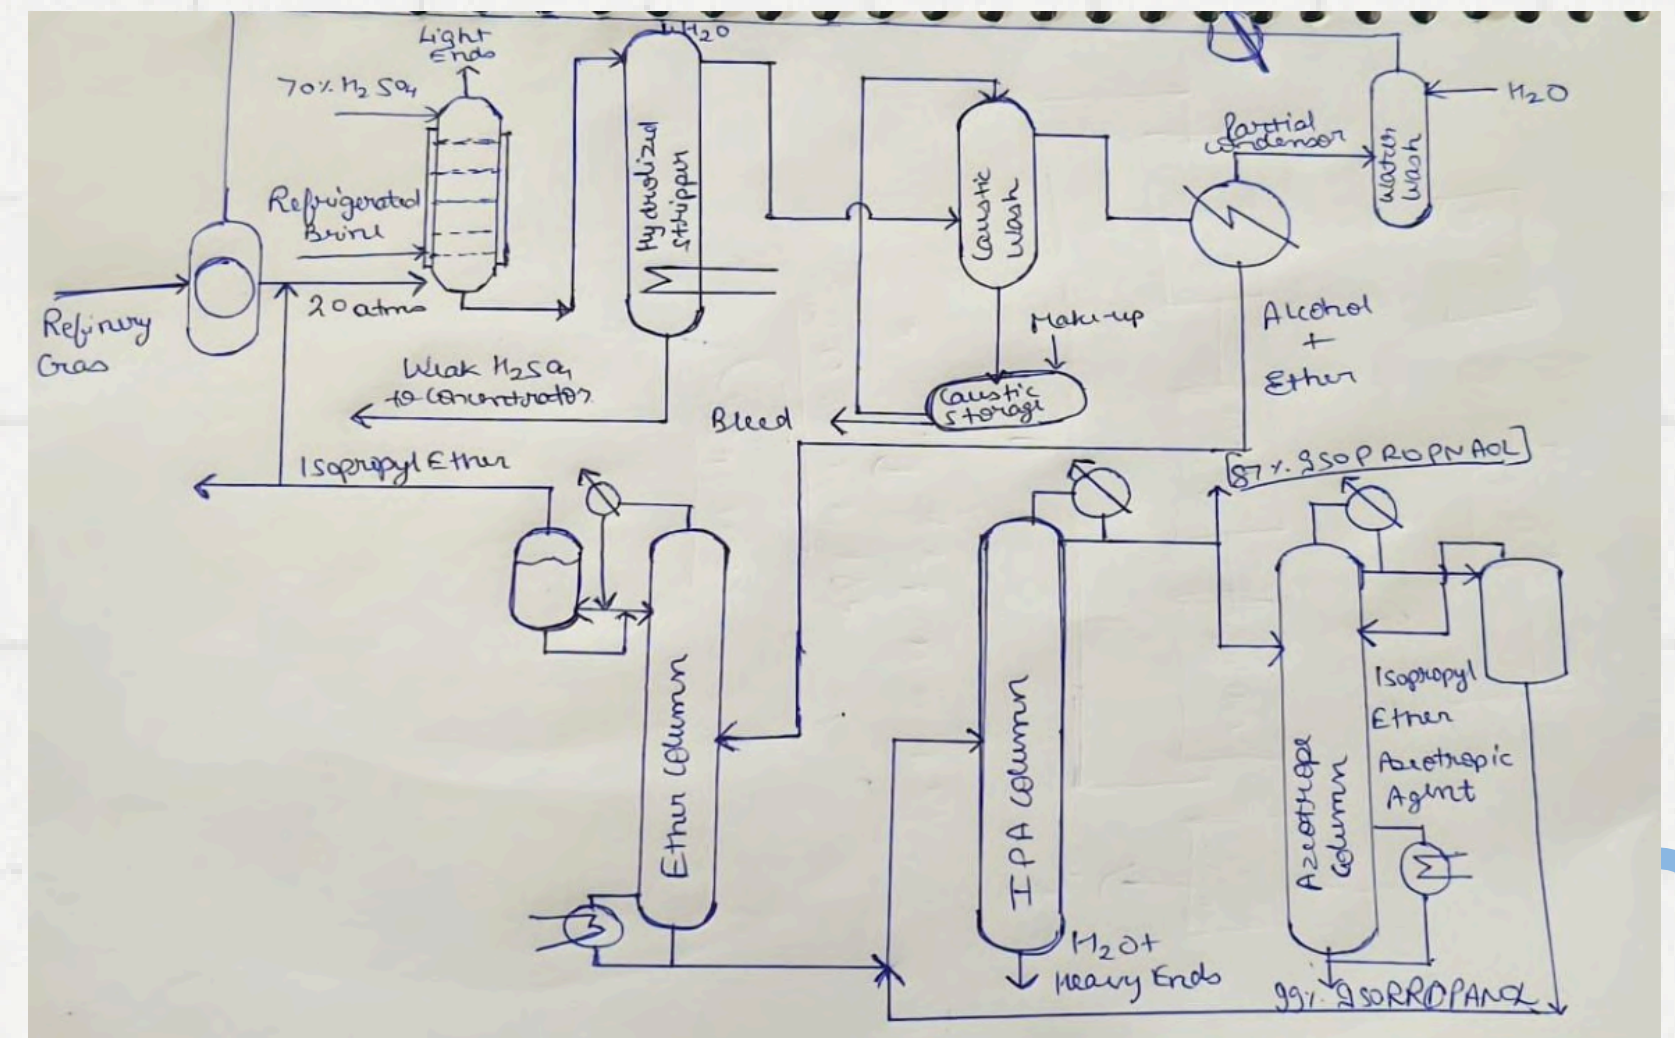 Light
Ends
H2O
70% H2SO4
Refrigerated
Brine
Hydrolized
Stripper
Partial
Condensor
H2O
Water
Wash
Caustic
Wash
Refinery
Gas
20 atms
Weak H2SO4
to concentrator
Make-up
Caustic
Storage
Bleed
Alcohol
+
Ether
Isopropyl Ether
[87% ISOPROPNAOL]
Ether Column
IPA Column
Azeotrope
Column
Isopropyl
Ether
Azeotropic
Agent
H2O+
Heavy Ends
99% ISORROPANOL